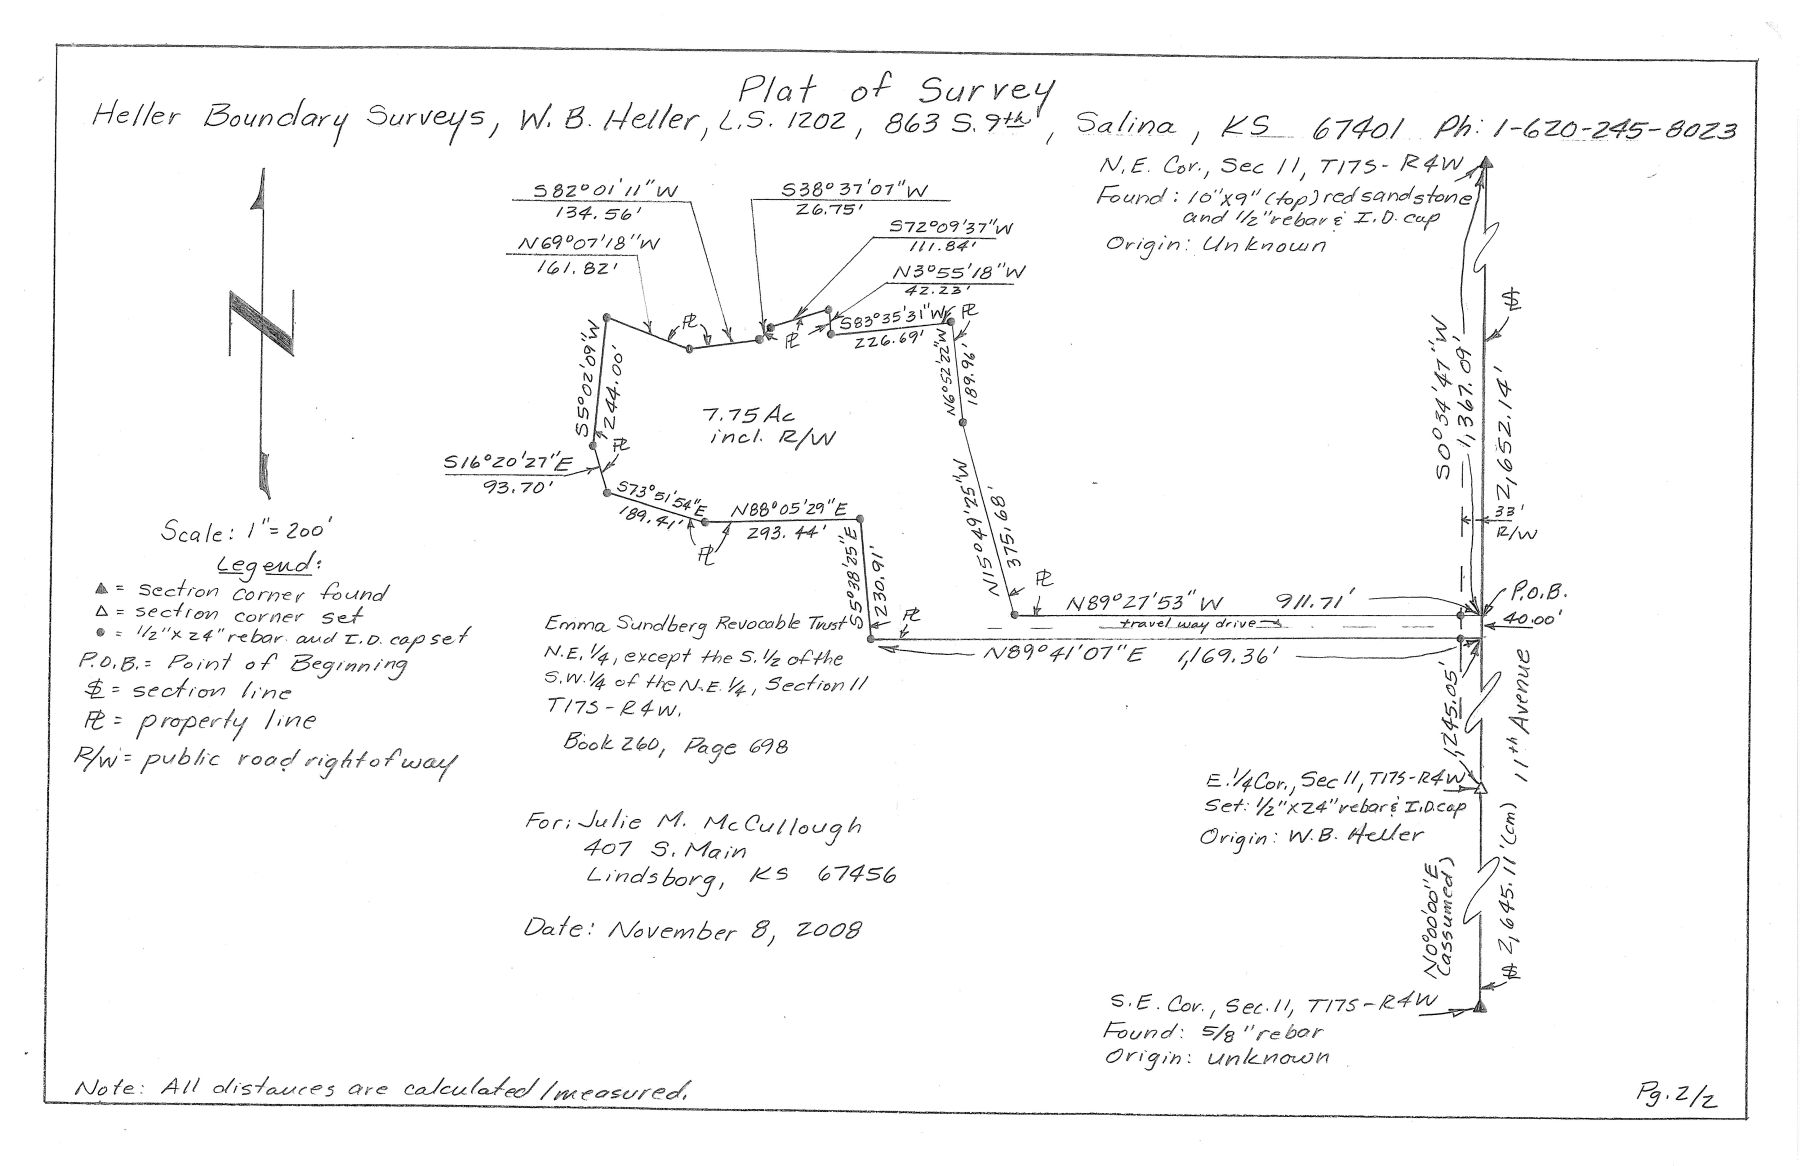 Plat of Survey
Heller Boundary Surveys, W. B. Heller, L.S. 1202, 863 S. 9th, Salina, KS 67401 Ph: 1-620-245-8023
N.E. Cor., Sec 11, T17S-R4W
Found: 10"x9" (top) red sandstone
and 1/2" rebar & I.D. cap
Origin: Unknown
S82°01'11"W
134.56'
S38°37'07"W
26.75'
N69°07'18"W
161.82'
S72°09'37"W
111.84'
N3°55'18"W
42.23'
S83°35'31"W
226.69'
PL
PL
PL
S5°02'09"W
244.00'
N6°52'22"W
189.96'
7.75 Ac
incl. R/W
PL
S16°20'27"E
93.70'
S73°51'54"E
189.41'
N88°05'29"E
293.44'
PL
S5°38'25"E
230.91'
N15°49'25"W
375.68'
PL
N89°27'53"W 911.71'
travel way drive
PL
N89°41'07"E 1,169.36'
S0°34'47"W
1,367.09'
2,652.14'
33'
R/W
P.O.B.
40.00'
1,245.05'
11th Avenue
E. 1/4 Cor., Sec 11, T17S-R4W
Set: 1/2"x24" rebar & I.D. cap
Origin: W.B. Heller
N0°00'00"E
(assumed)
2,645.11'(cm)
S.E. Cor., Sec. 11, T17S-R4W
Found: 5/8" rebar
Origin: unknown
Scale: 1"=200'
Legend:
▲ = section corner found
△ = section corner set
● = 1/2"x24" rebar and I.D. cap set
P.O.B. = Point of Beginning
SL = section line
PL = property line
R/W = public road right of way
Emma Sundberg Revocable Trust
N.E. 1/4, except the S. 1/2 of the
S.W. 1/4 of the N.E. 1/4, Section 11
T17S-R4W.
Book 260, Page 698
For: Julie M. McCullough
407 S. Main
Lindsborg, KS 67456
Date: November 8, 2008
Note: All distances are calculated/measured.
Pg. 2/2